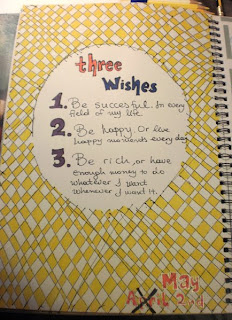 three
Wishes
1. Be succesful in every
field of my life.
2. Be happy or live
happy moments every day
3. Be rich, or have
enough money to do
whatever I want
whenever I want it.
May
April 2nd